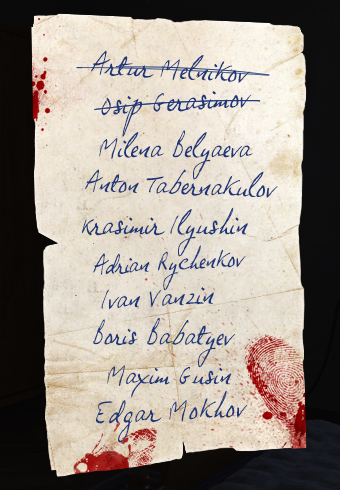 Artur Melnikov
Osip Gerasimov
Milena Belyaeva
Anton Tabernakulov
Krasimir Ilyushin
Adrian Rychenkov
Ivan Vanzin
Boris Babatyev
Maxim Gusin
Edgar Mokhov